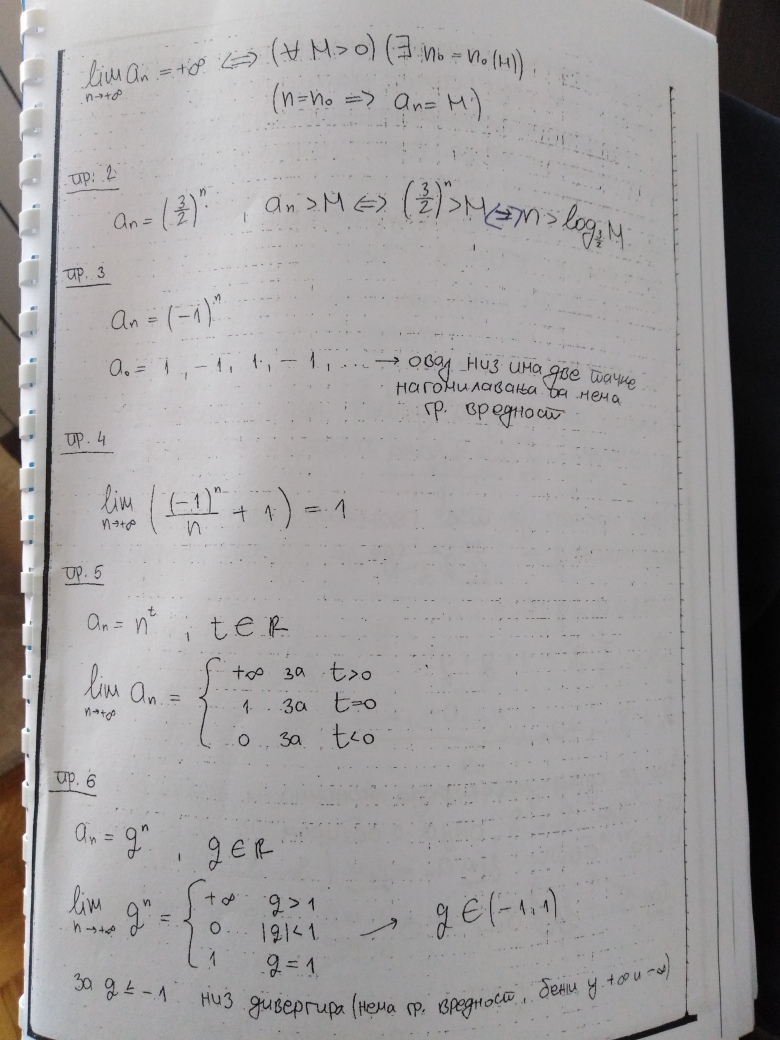 lim aₙ = +∞ ⇔ (∀ M > 0) (∃ n₀ = n₀(M))
n→+∞
(n = n₀ ⇒ aₙ = M)
пр. 2
aₙ = (3/2)ⁿ , aₙ > M ⇔ (3/2)ⁿ > M ⇔ n > log_{3/2} M
пр. 3
aₙ = (-1)ⁿ
a₀ = 1, -1, 1, -1, ... → овај низ има две тачке
нагомилавања па нема
гр. вредност
пр. 4
lim ((-1)ⁿ/n + 1) = 1
n→+∞
пр. 5
aₙ = nᵗ , t ∈ ℝ
lim aₙ = { +∞ за t>0
n→+∞
1 за t=0
0 за t<0
пр. 6
aₙ = gⁿ , g ∈ ℝ
lim gⁿ = { +∞ g > 1
n→+∞
0 |g| < 1 → g ∈ (-1, 1)
1 g = 1
за g ≤ -1 низ дивергира (нема гр. вредност, бежи у +∞ и -∞)